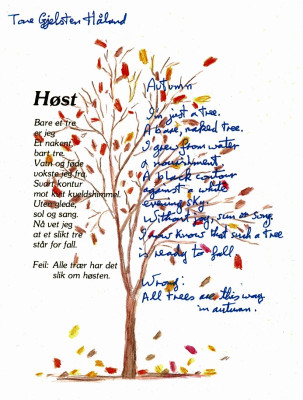 Tone Gjelsten Håland
Høst
Bare et tre
er jeg
Et nakent,
bart tre.
Vatn og føde
vokste jeg fra.
Svart kontur
mot kvit kveldshimmel.
Uten glede,
sol og sang.
Nå vet jeg
at et slikt tre
står for fall.
Feil: Alle trær har det
slik om høsten.
Autumn
I'm just a tree.
A bare, naked tree.
I grew from water
a nourishment.
A black contour
against a white
evening sky.
Without joy, sun or song.
I now know that such a tree
is ready to fall.
Wrong!
All trees are this way
in autumn.